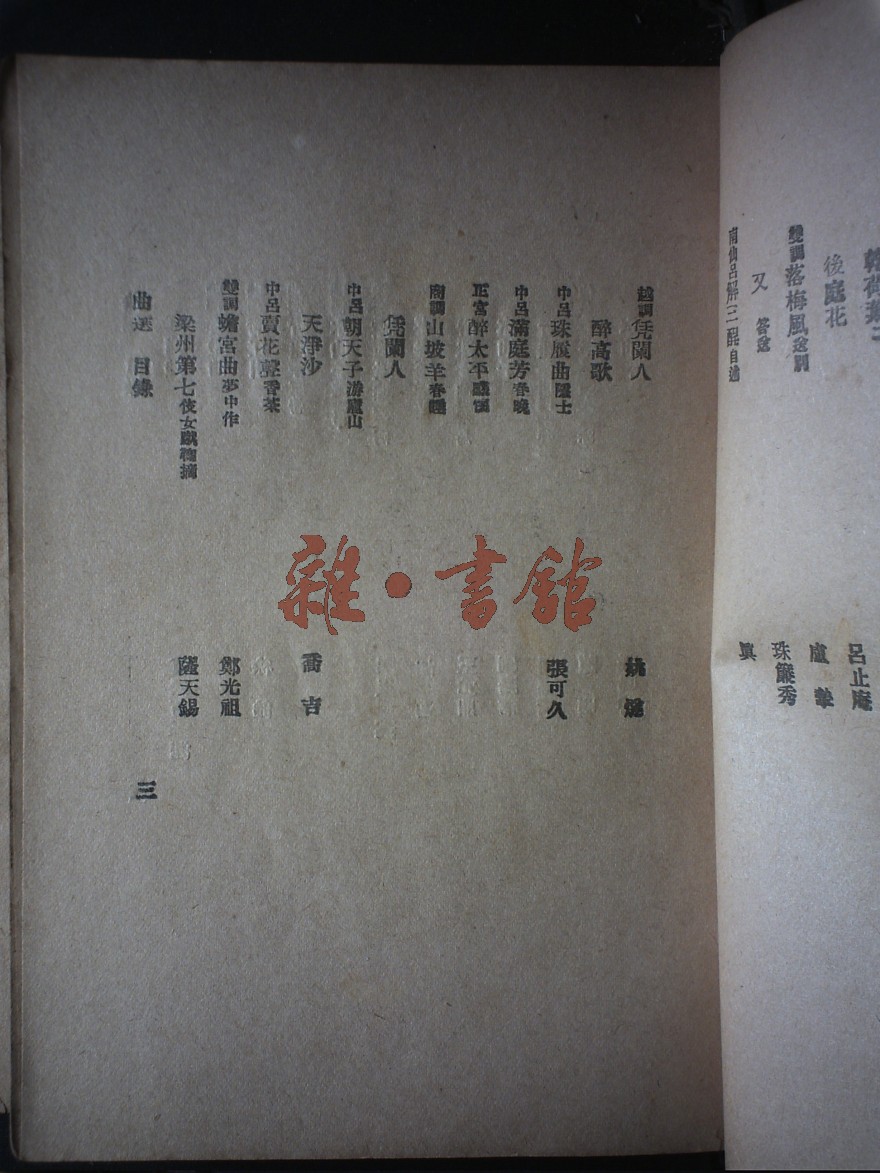 後庭花
呂止庵
雙調落梅風送別
盧摯
又 答送
珠簾秀
南仙呂解三酲自述
真
越調凭闌人
姚燧
醉高歌
中呂珠履曲隱士
張可久
中呂滿庭芳春晚
正宮醉太平感懷
商調山坡羊春睡
凭闌人
中呂朝天子游廬山
天淨沙
喬吉
中呂賣花聲香茶
雙調蟾宮曲夢中作
鄭光祖
梁州第七伎女蹴鞠摘
薩天錫
曲選 目錄
三
雜·書館